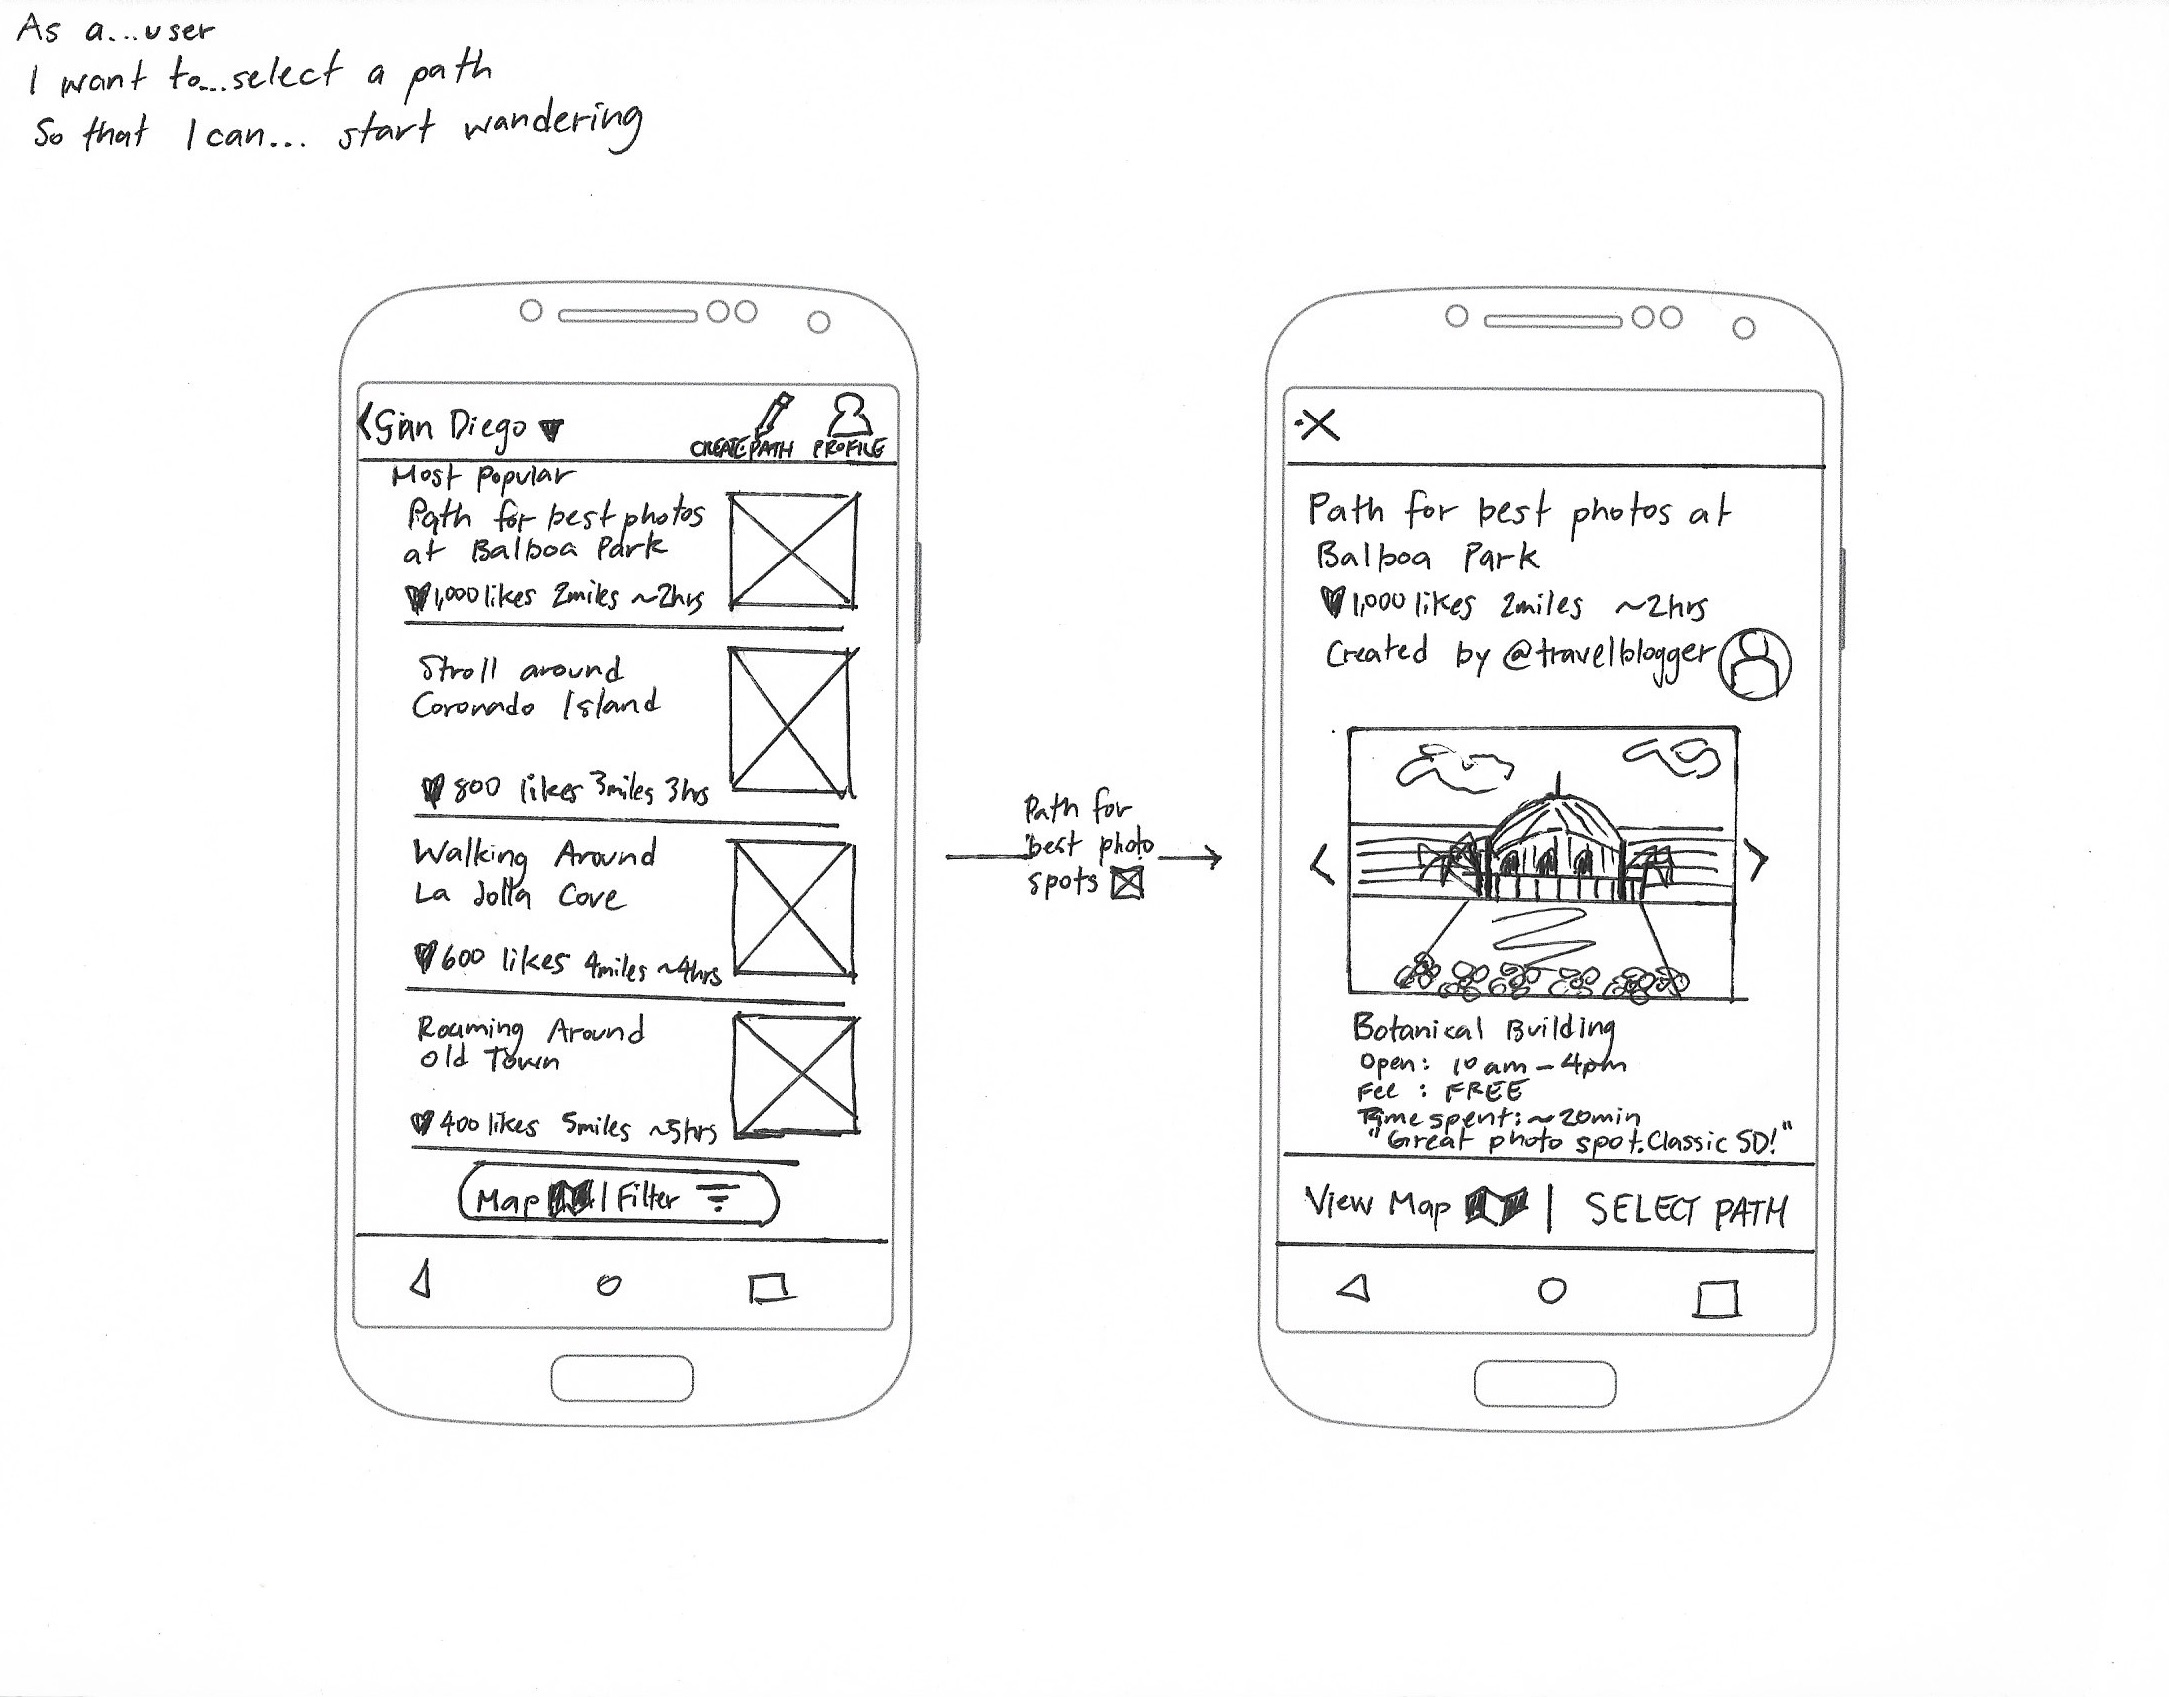 As a...user
I want to...select a path
So that I can... start wandering
San Diego
CREATE PATH PROFILE
Most Popular
Path for best photos
at Balboa Park
1,000 likes 2miles ~2hrs
Stroll around
Coronado Island
800 likes 3miles 3hrs
Walking Around
La Jolla Cove
600 likes 4miles ~4hrs
Roaming Around
Old Town
400 likes 5miles ~5hrs
Map | Filter
Path for
best photo
spots
Path for best photos at
Balboa Park
1,000 likes 2miles ~2hrs
Created by @travelblogger
Botanical Building
Open: 10 am - 4pm
Fee : FREE
Time spent: ~20min
"Great photo spot. Classic SD!"
View Map | SELECT PATH